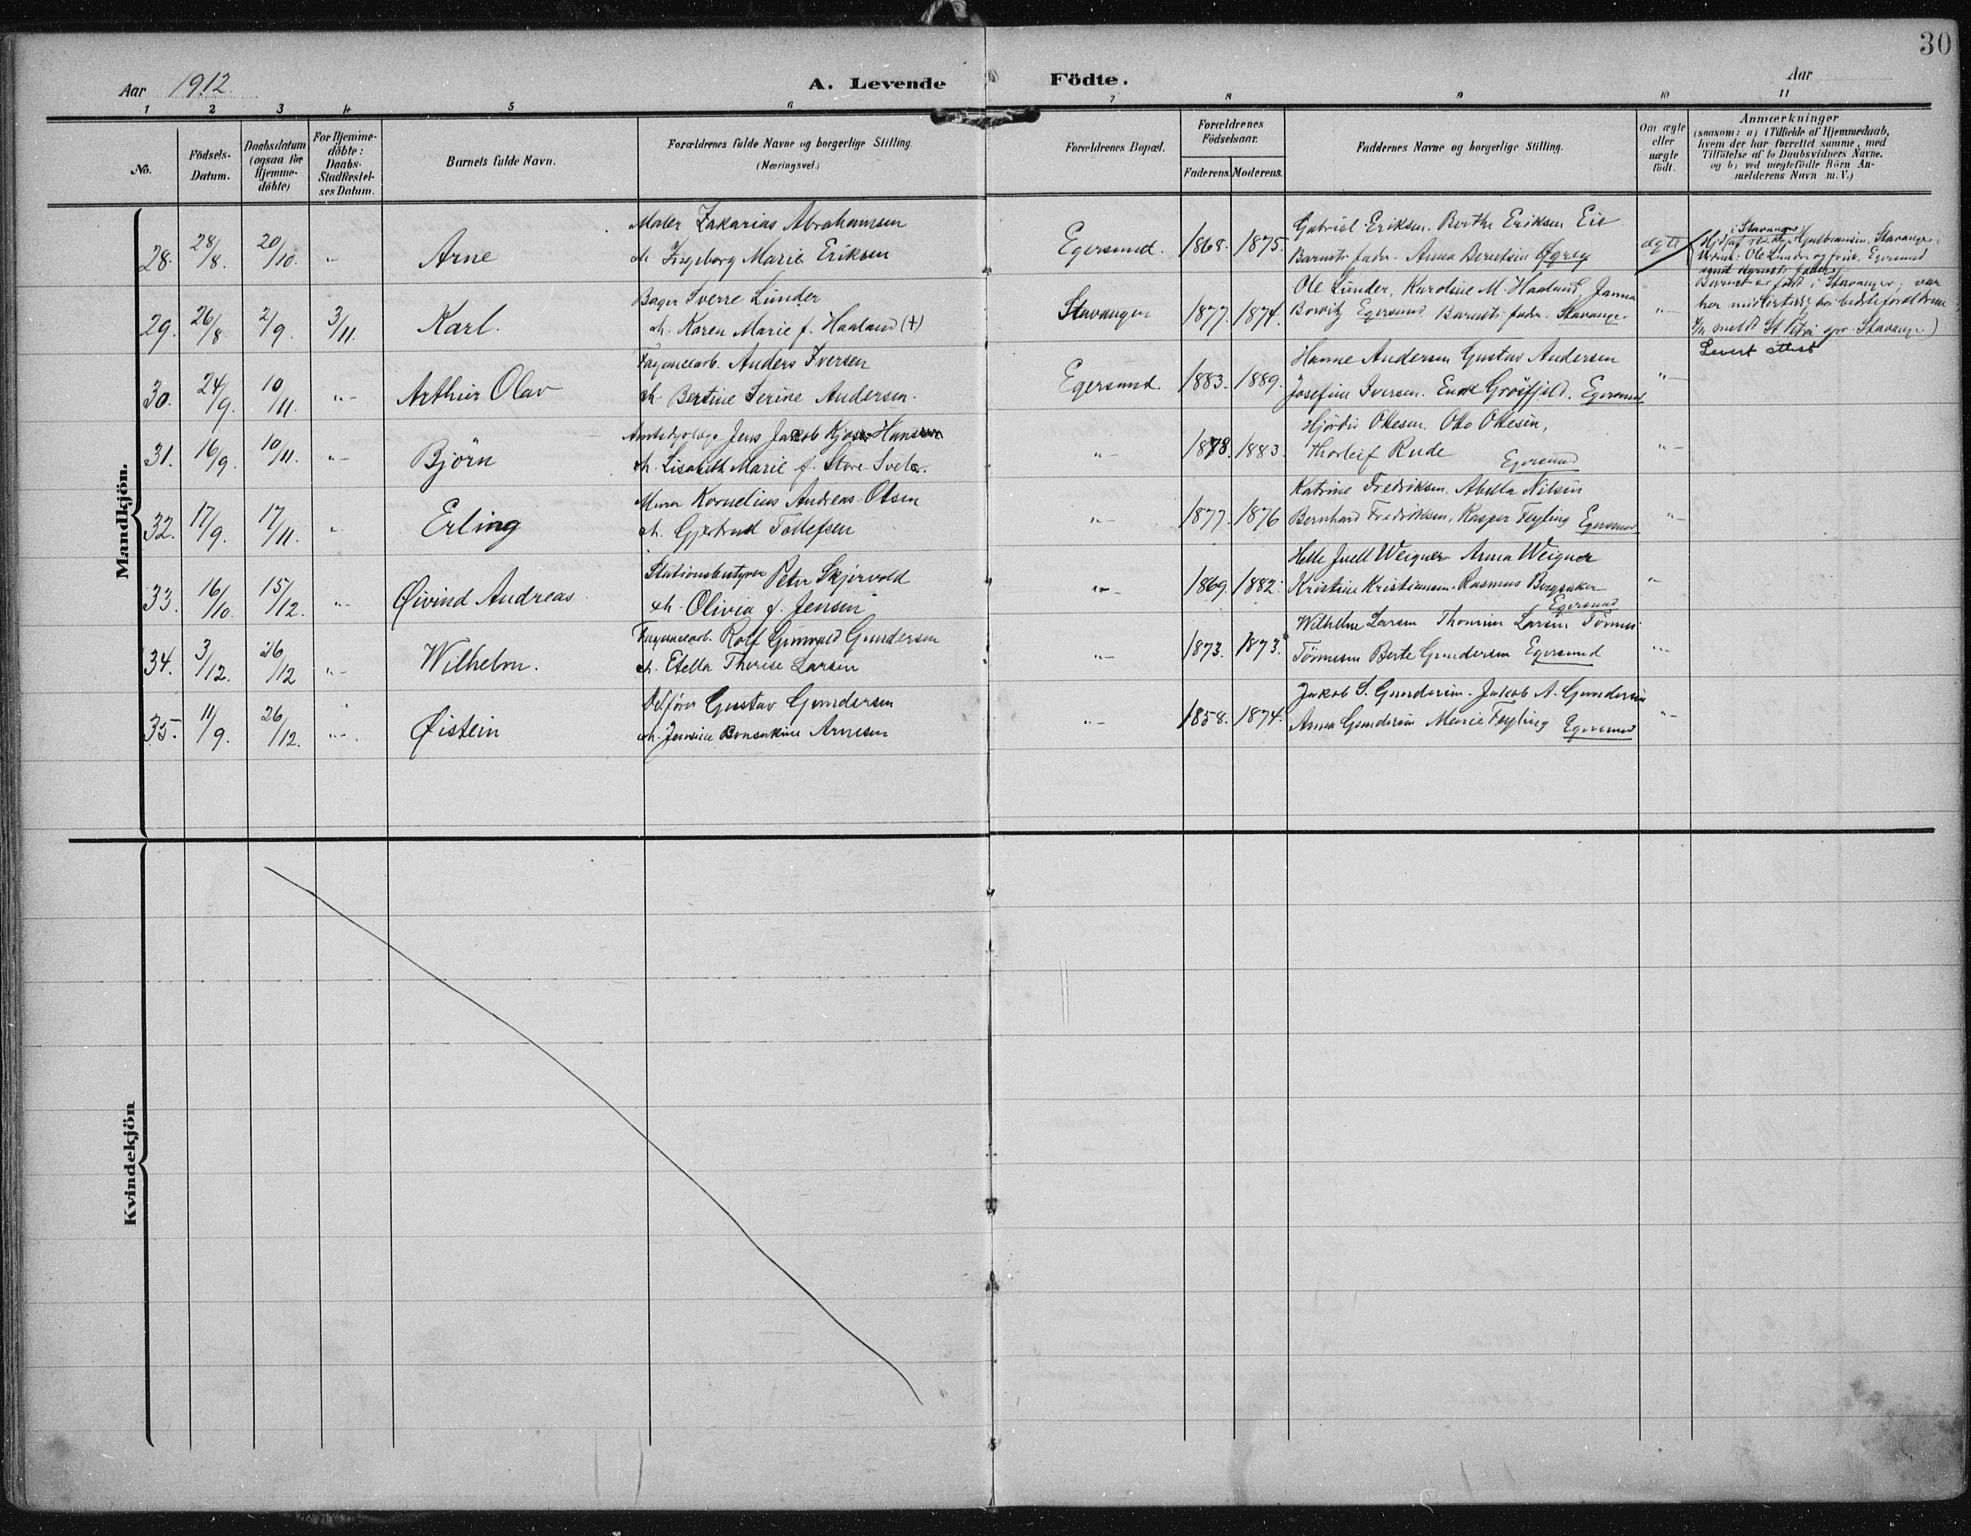 30
Aar 1912.
A. Levende Födte.
Aar
1 2 3 4 5 6 7 8 9 10 11
No.
Födsels-Datum.
Daabsdatum (ogsaa for Hjemmedöbte)
For Hjemmedöbte: Daabs-Stadfæstelses Datum.
Barnets fulde Navn.
Forældrenes fulde Navne og borgerlige Stilling.
(Næringsvei.)
Forældrenes Bopæl.
Forældrenes Födselsaar.
Faderens. Moderens.
Faddernes Navne og borgerlige Stilling.
Om ægte eller uægte födt.
Anmærkninger
(saasom: a) i Tilfælde af Hjemmedaab,
hvem der har forrettet samme, med
Tilföielse af to Daabsvidners Navne.
og b) ved uægtefödte Börn An-
melderens Navn m. V.)
Mandkjön.
Maler Zakarias Abrahamsen Gabriel Eriksen. Berthe Eriksen Eie
28. 28/8. 20/10. "- Arne h. Ingeborg Marie Eriksen Egersund. 1868. 1875 Barnets fader. Anna Berntsen Øgrey ægte
i Stavanger
Stavanger
Ole Lunde og frue, Egersund
Bager Sverre Lunder Ole Lunder, Karoline M. Haaland Janna
29. 26/8. 2/9. 3/11. Karl. h. Karen Marie f. Haaland (+) Stavanger 1877. 1874. Egersund Barnets fader. Stavanger. "-
Barnet er født i Stavanger, var
her midlertidig hos bedsteforældrene
meldt St Petri Stavanger)
Levert attest
Fayancearb. Anders Iversen Hanne Andersen Gustav Andersen
30. 24/9. 10/11. "- Arthur Olav h. Bertine Serine Andersen. Egersund. 1883. 1889. Josefine Iversen. Grøsfjeld. Egersund "-
Jens Jakob Hansen Hjørdis Ottesen. Otto Ottesen,
31. 16/9. 10/11. "- Björn h. Lisabeth Marie f. "- 1878. 1883. Thorleif Rude Egersund "-
Murer Kornelius Andreas Olsen Katrine Fredriksen. Abella Nilsen
32. 17/9. 17/11. " Erling h. Gjertrud Tollefsen "- 1877. 1876 Bernhard Fredriksen, Kasper Feyling Egersund "-
Stationsbestyrer Peter Skjervold Helle Juell Weigner Anna Weigner
33. 16/10. 15/12. "- Øivind Andreas h. Olivia f. Jensen "- 1869. 1882. Kristine Kristiansen. Rasmus Egersund "-
Fayancearb. Rolf Gunvald Gundersen Wilhelm Larsen Larsen
34. 3/12. 26/12 "- Wilhelm. h. Etella Therese Larsen "- 1873. 1873. Tönnesen Berte Gundersen Egersund "-
Gustav Gundersen Jakob S. Gundersen. Jakob A. Gundersen
35. 11/9. 26/12. "- Øistein h. Arnesen "- 1858. 1874. Anna Gundersen Marie Feyling Egersund "-
Kvindekjön